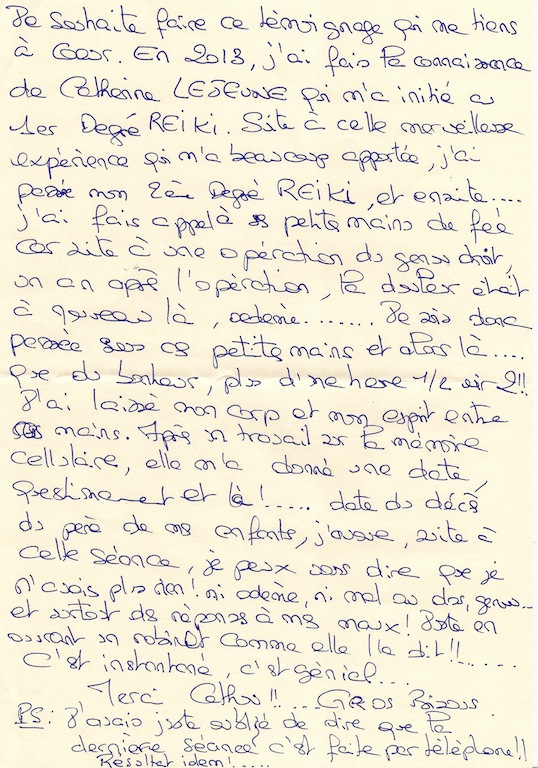 Je souhaite faire ce témoignage qui me tiens
à Coeur. En 2013, j'ai fais la connaissance
de Catherine LEJEUNE qui m'a initié au
1er Degré REIKI. Suite à cette merveilleuse
expérience qui m'a beaucoup apportée, j'ai
passé mon 2ème Degré REIKI, et ensuite....
j'ai fais appel à ses petite mains de feé
car suite à une opération du genou droit,
un an après l'opèration, la douleur était
à nouveau là, oedeme........ Je suis donc
passée sous ces petite mains et alors là....
que du bonheur, plus d'une heure 1/2 voir 2!!
J'ai laissé mon corp et mon esprit entre
ses mains. Après un travail sur la mémoire
cellulaire, elle m'a donné une date,
questionnement et là!..... date du décès
du père de mes enfants, j'avoue, suite à
cette séance, je peux vous dire que je
n'avais plus rien! ni oedème, ni mal au dos, genou...
et surtout des réponses à mes maux! Juste en
ouvrant un robinet comme elle l'a dit!!......
C'est instantané, c'est génial...
Merci Cathie!! .... GROS Bisous
PS: J'avais juste oublié de dire que la
dernière séance c'est faite par téléphone!!
Résultat idem!.....